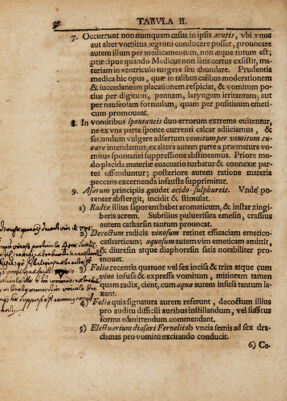 TABULA II.
7. Occurrunt non nunquam casus in ipsis acutis, vbi vnus
aut alter vomitus ægroto conducere possit, prouocare
autem illum per medicamentum, non æque tutum est;
præcipue quando Medicus non satis certus existit, ma-
teriam in ventriculo vrgere seu abundare. Prudentia
medica hic opus, quæ in talibus casibus moderationem
& succedaneam placationem respiciat, & vomitum po-
tius per digitum, pennam, laryngem irritantem, aut
per nauseosam formulam, quam per positiuum emeti-
cum promoueat.
8. In vomitibus spontaneis duo errorum extrema euitentur,
ne ex vna parte sponte currenti calcar adiiciamus, &
secundum vulgare assertum vomitum per vomitum cu-
rare intendamus, ex altera autem parte a præmatura vo-
mitus sponnunei suppressione abstineamus. Priore mo-
do placida materiæ euacuatio turbatur & connexæ par-
tes offenduntur; posteriore autem ratione materia
peccans excernenda insulse supprimitur.
9. Asarum principiis gaudet acido-sulphureis. Vnde po-
tenter abstergit, incidit & stimulat.
1) Radix illius saporem habet aromaticum, & instar zingi-
beris acrem. Subtilius puluerisata emesin, crassius
autem catharsin tantum prouocat.
2) Decoctum radicis vinosum retinet efficaciam emetico-
catharticam; aquosum autem vim emeticam amittit,
& diuresin atque diaphoresin satis notabiliter pro-
mouet.
3) Folia recentia quatuor vel sex incisa & trita atque cum
vino infusa & expressa vomitum, mitiorem tamen
quam radix, cient, cum aqua autem infusa tantum la-
xant.
4) Folia quia signatura aurem referunt, decoctum illius
pro auditu difficili auribus instillandum, vel suffitus
forma admittendum commendant.
5) Electuarium diasari Fernelii ab vncia semis ad sex dra-
dmas pro vomitu exciando conducit.
6) Co-